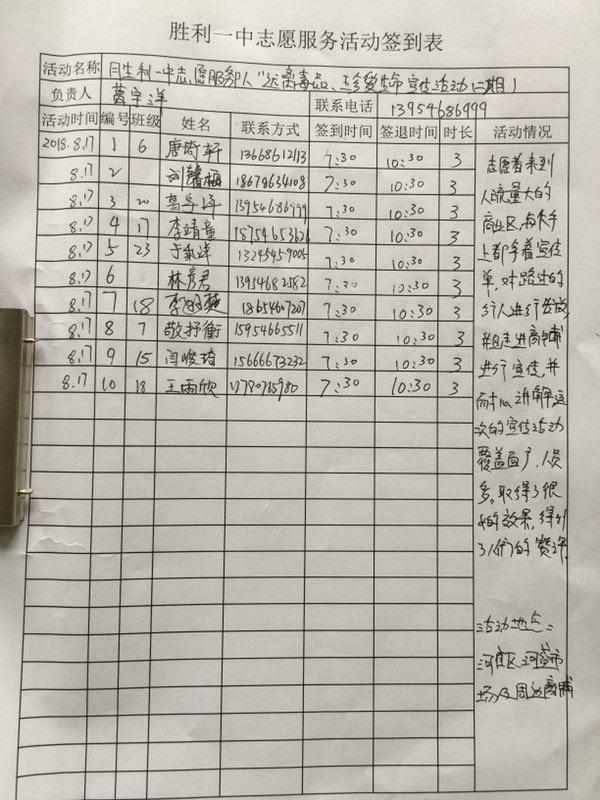 胜利一中志愿服务活动签到表
活动名称 胜利一中志愿服务队"远离毒品、珍爱生命"宣传活动(二期)
负责人 葛宇洋 联系电话 13954686999
活动时间 编号 班级 姓名 联系方式 签到时间 签退时间 时长 活动情况
2018.8.17 1 6 唐琦轩 13668612113 7:30 10:30 3
8.17 2 刘馨梅 18678634108 7:30 10:30 3
8.17 3 20 葛宇洋 13954686999 7:30 10:30 3
8.17 4 17 李靖童 15954653626 7:30 10:30 3
8.17 5 23 于 洋 13245459005 7:30 10:30 3
8.17 6 林彦君 13954682582 7:30 10:30 3
8.17 7 18 李 18654667207 7:30 10:30 3
8.17 8 7 敬抒衡 15954665511 7:30 10:30 3
8.17 9 15 闫峻琦 15666673232 7:30 10:30 3
8.17 10 18 王雨欣 7:30 10:30 3
志愿者来到
人流量大的
商业区,每人手
上都拿着宣传
单,对路过的
行人进行发放
并且走进商铺
进行宣传,并
加以讲解,这
次的宣传活动
覆盖面广,人员
多,取得了很
好的效果,得到
了人们的赞评.
活动地点:
河庄区 市
场及周边商铺